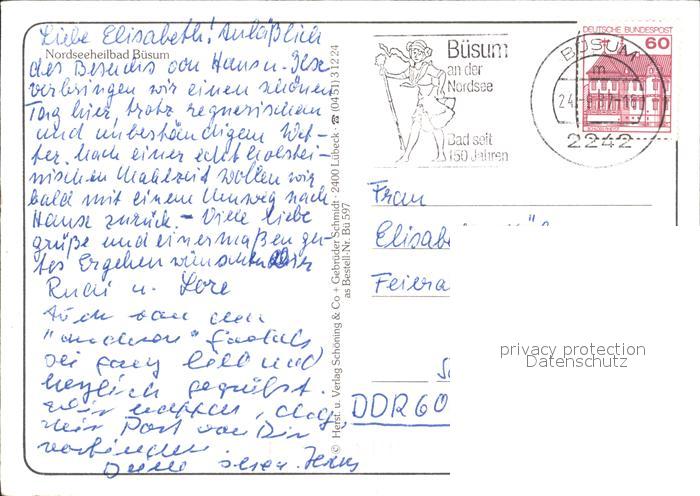 Liebe Elisabeth! Anläßlich
Nordseeheilbad Büsum
des Besuchs von Hans u. Gese
verbringen wir einen schönen
Tag hier, trotz regnerischem
und unbeständigem Wet-
ter. Nach einer echt holstei-
nischen Mahlzeit wollen wir
bald mit einem Umweg nach
Hause zurück. - Viele liebe
Grüße und einermaßen gu-
tes Ergehen wünschen Dir
Rudi u. Lore
Auch von den
"anderen"
sei ganz lieb und
herzlich gegrüßt.
Wir
Post von Dir
Deine
© Herst. u. Verlag Schöning & Co + Gebrüder Schmidt · 2400 Lübeck ☎ (0451) 3 12 24
as Bestell-Nr. Bü 597
Büsum
an der
Nordsee
Bad seit
150 Jahren
BÜSUM
m
2242
DEUTSCHE BUNDESPOST
60
Frau
Elisab
Feiera
DDR 60
privacy protection
Datenschutz